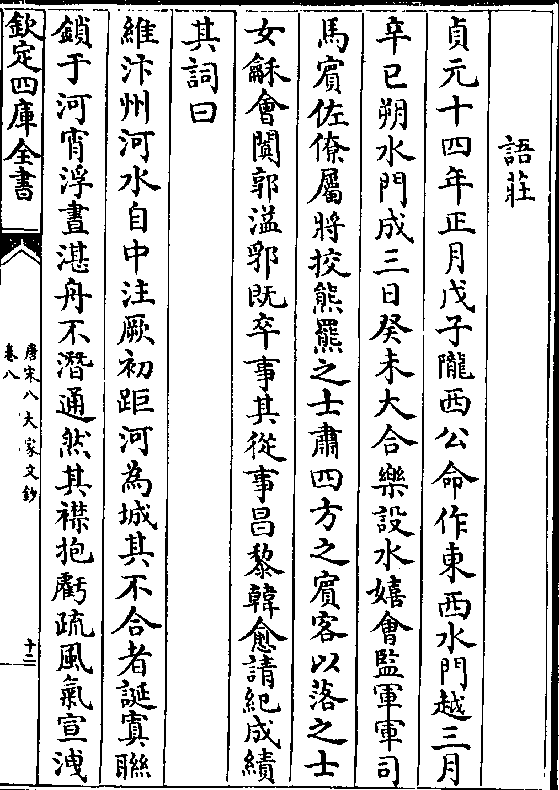 語莊
貞元十四年正月戊子隴西公命作東西水門越三月
辛巳朔水門成三日癸未大合樂設水嬉會監軍軍司
馬賓佐僚屬將挍熊羆之士肅四方之賓客以落之士
女龢會闐郭溢郛既卒事其從事昌黎韓愈請紀成績
其詞曰
維汴州河水自中注厥初距河為城其不合者誕寘聯
鎖于河宵浮晝湛舟不潛通然其襟抱虧疏風氣宣洩
欽定四庫全書
唐宋八大家文鈔
卷八
十二